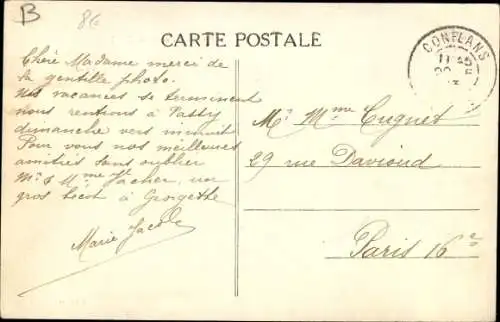 B
86
CARTE POSTALE
CONFLANS
Chère Madame merci de
la gentille photo.
Nos vacances se terminent
nous rentions à Passy
dimanche vers minuit
Pour vous nos meilleures
amitiés sans oublier
Mr & Mme St Jacher, un
gros à Georgette
Marie
Mr Mme Cugnet
29 rue Davioud
Paris 16e